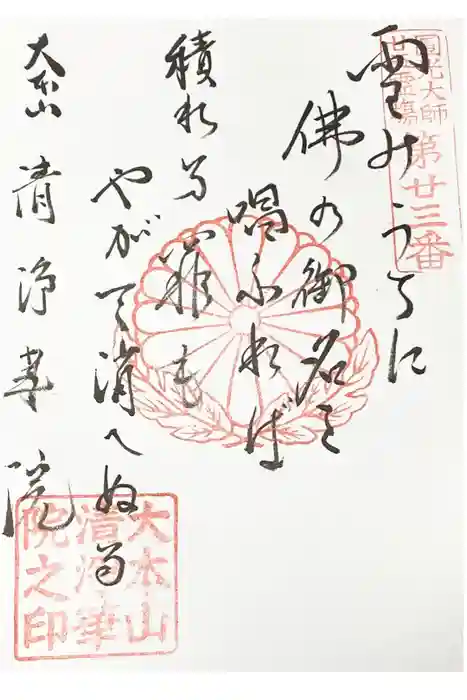 圓光大師
廿五霊場
第廿三番
雪のうちに
佛の御名を
唱ふれば
積れる罪も
やがて消へぬる
大本山 清浄華院
大本山
清浄華
院之印